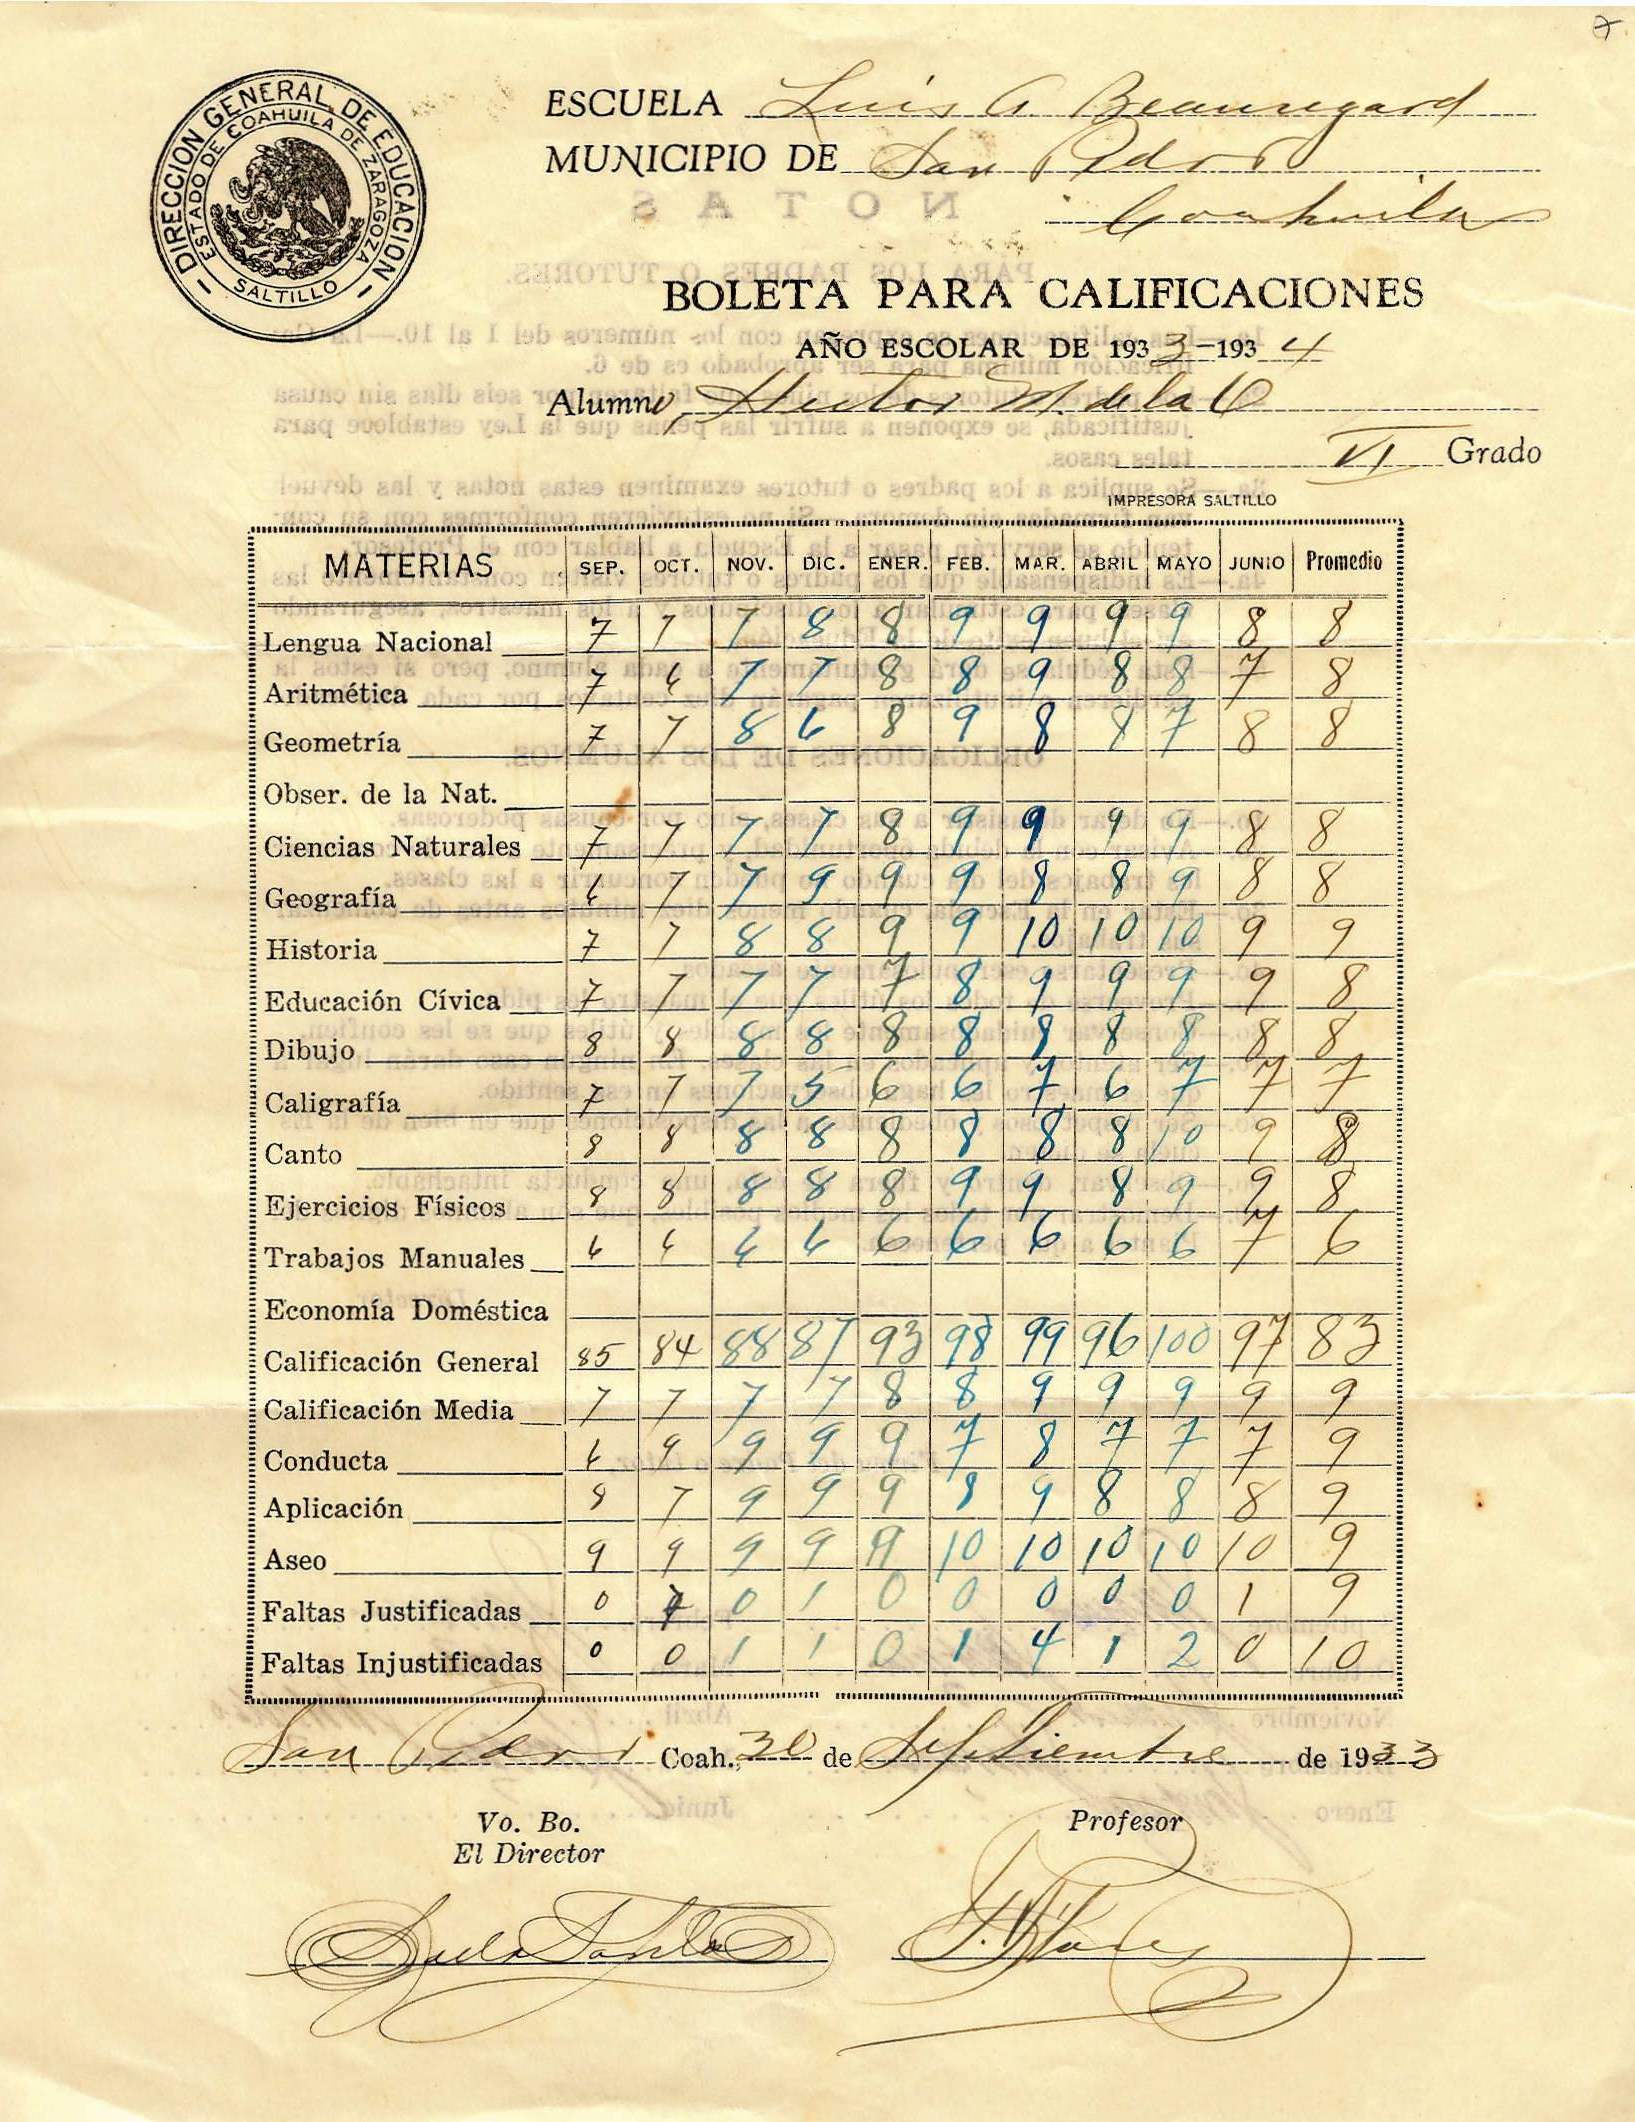 DIRECCION GENERAL DE EDUCACION
ESTADO DE COAHUILA DE ZARAGOZA
SALTILLO
ESCUELA Luis A. Beauregard
MUNICIPIO DE San Pedro
Coahuila
BOLETA PARA CALIFICACIONES
AÑO ESCOLAR DE 1933-1934
Alumno, Hector M. de la O
VI Grado
IMPRESORA SALTILLO
MATERIAS SEP. OCT. NOV. DIC. ENER. FEB. MAR. ABRIL MAYO JUNIO Promedio
Lengua Nacional 7 7 7 8 8 9 9 9 9 8 8
Aritmética 7 6 7 7 8 8 9 8 8 7 8
Geometría 7 7 8 6 8 9 8 8 7 8 8
Obser. de la Nat.
Ciencias Naturales 7 7 7 7 8 9 9 9 9 8 8
Geografía 6 7 7 9 9 9 8 8 9 8 8
Historia 7 7 8 8 9 9 10 10 10 9 9
Educación Cívica 7 7 7 7 7 8 9 9 9 9 8
Dibujo 8 8 8 8 8 8 8 8 8 8 8
Caligrafía 7 7 7 5 6 6 7 6 7 7 7
Canto 8 8 8 8 8 8 8 8 10 9 8
Ejercicios Físicos 8 8 8 8 8 9 9 8 9 9 8
Trabajos Manuales 6 6 6 6 6 6 6 6 6 7 6
Economía Doméstica
Calificación General 85 84 88 87 93 98 99 96 100 97 83
Calificación Media 7 7 7 7 8 8 9 9 9 9 9
Conducta 6 9 9 9 9 7 8 7 7 7 9
Aplicación 8 7 9 9 9 8 9 8 8 8 9
Aseo 9 9 9 9 9 10 10 10 10 10 9
Faltas Justificadas 0 7 0 1 0 0 0 0 0 1 9
Faltas Injustificadas 0 0 1 1 0 1 4 1 2 0 10
San Pedro Coah. 30 de Septiembre de 1933
Vo. Bo.
El Director
Profesor